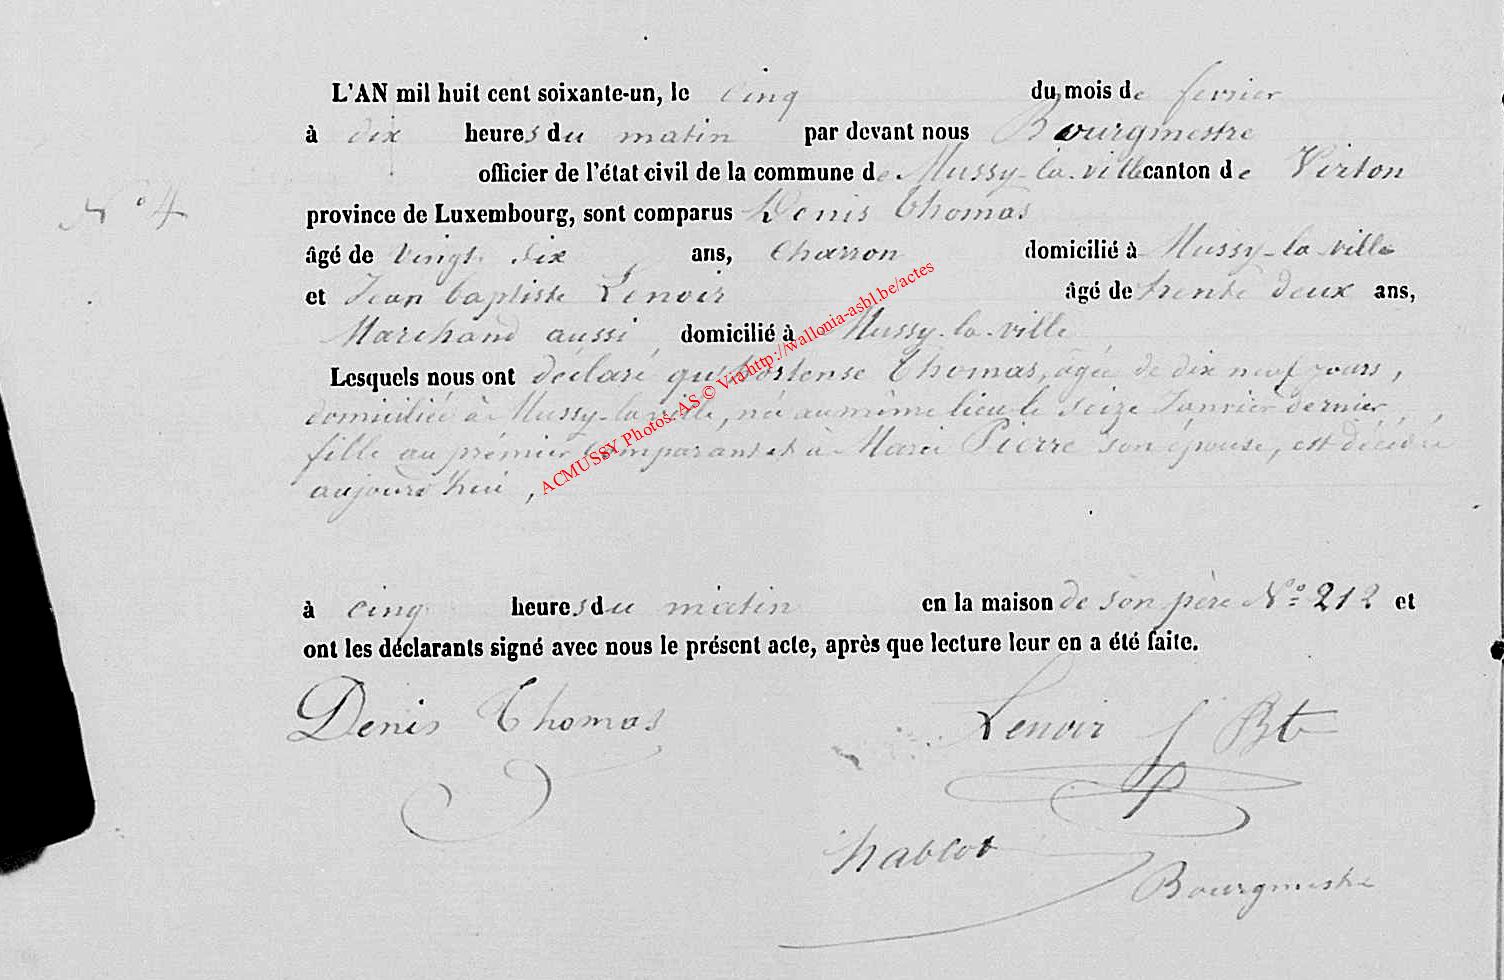 L'AN mil huit cent soixante-un, le cinq du mois de fevrier
à dix heures du matin par devant nous Bourgmestre
officier de l'état civil de la commune de Mussy-la-ville canton de Virton
N° 4
province de Luxembourg, sont comparus Denis Thomas
âgé de vingt six ans, Charron domicilié à Mussy-la-ville
et Jean baptiste Lenoir âgé de trente deux ans,
Marchand aussi domicilié à Mussy-la-ville
Lesquels nous ont déclaré qu'hortense Thomas, agée de dix neuf jours,
domiciliée à Mussy-la-ville, née au même lieu le seize Janvier dernier,
fille au prémier Comparant et à Marie Pierre son épouse, est décédée
aujourd'hui,
ACMUSSY Photos: AS © Via http://wallonia-asbl.be/actes
à cinq heures du matin en la maison de son père N° 212 et
ont les déclarants signé avec nous le présent acte, après que lecture leur en a été faite.
Denis Thomas Lenoir J Bte
hablot
Bourgmestre